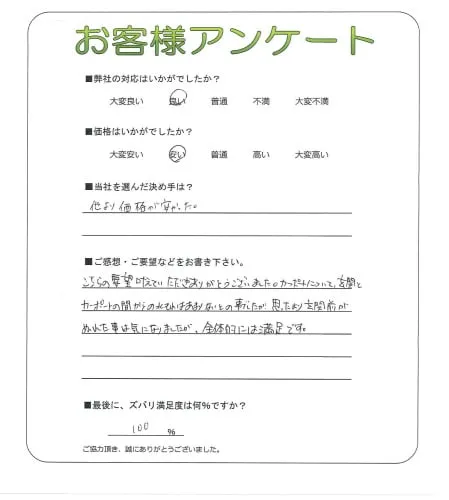 お客様アンケート
■弊社の対応はいかがでしたか？
大変良い 良い 普通 不満 大変不満
■価格はいかがでしたか？
大変安い 安い 普通 高い 大変高い
■当社を選んだ決め手は？
他より価格が安かった。
■ご感想・ご要望などをお書き下さい。
こちらの要望叶えていただきありがとうございました。カーポートについて、玄関と
カーポートの間からの水もれはあまりないとの事でしたが 思ったより玄関前が
ぬれた事は気になりましたが、全体的には満足です。
■最後に、ズバリ満足度は何%ですか？
100 %
ご協力頂き、誠にありがとうございました。